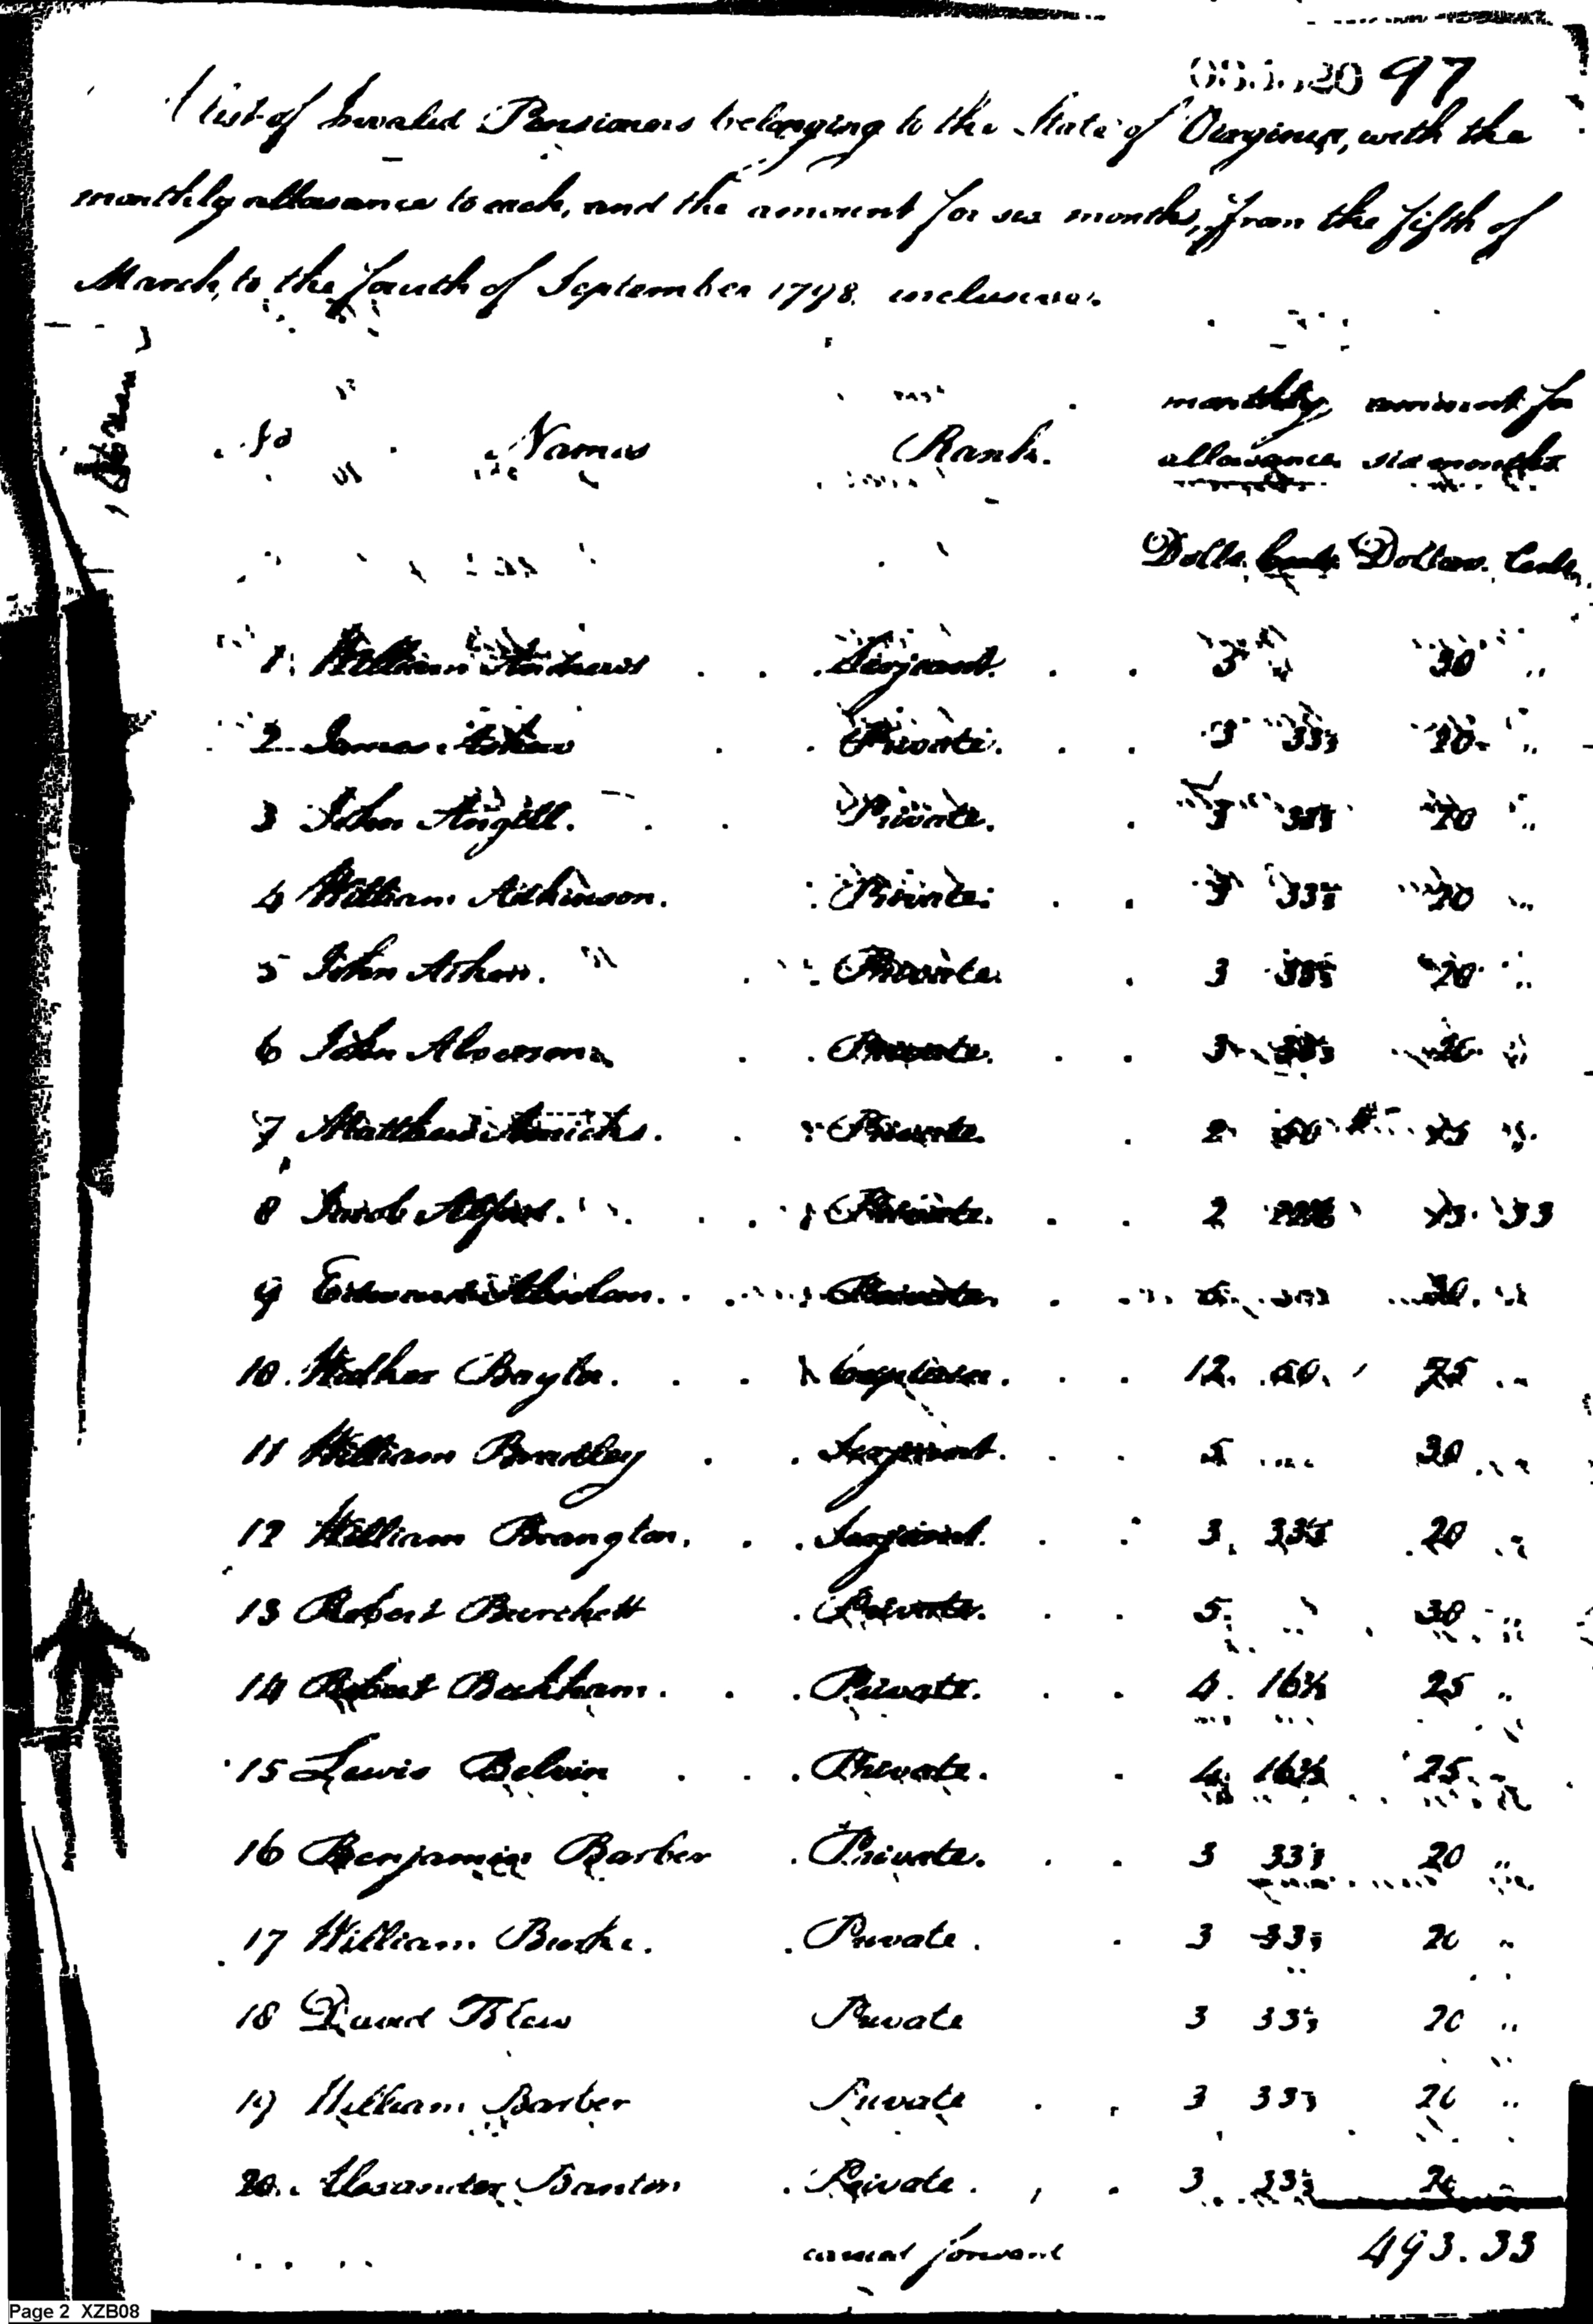 97
A List of Invalid Pensioners belonging to the State of Virginia, with the
monthly allowance to each, and the amount for six months, from the fifth of
March, to the fourth of September 1798. inclusive.
monthly amount for
No Names Rank. allowance six months
Dolls. Cents Dollars. Cents
1. William Andrews Serjeant. 5 30 "
2 James Private. 3 33⅓ 20 "
3 John Angell. Private. 3 33⅓ 20 "
4 William Adkinson. Private. 3 33⅓ 20 "
5 John Private. 3 33⅓ 20 "
6 John Alverson Private. 3 33⅓ 20 "
7 Matthew Private. 2 50 15 "
8 Jacob Private. 2 13. 33
9 Private. 5 30. "
10. Walker Baylor. Captain. 12. 50. 75 "
11 William Brantley Serjeant. 5 30 "
12 William Brangton. Serjeant. 3. 33⅓ 20 "
13 Robert Burchett Private. 5. " 30 "
14 Robert Beckham. Private. 4. 16⅔ 25 "
15 Lewis Belvin Private. 4. 16⅔ 25 "
16 Benjamin Barber Private. 3 33⅓ 20 "
17 William Burke. Private. 3 33⅓ 20 "
18 David Blew Private 3 33⅓ 20 "
19 William Barber Private 3 33⅓ 20 "
20. Alexander Banton Private. 3 33⅓ 20 "
carried forward 493.33
Page 2 XZB08